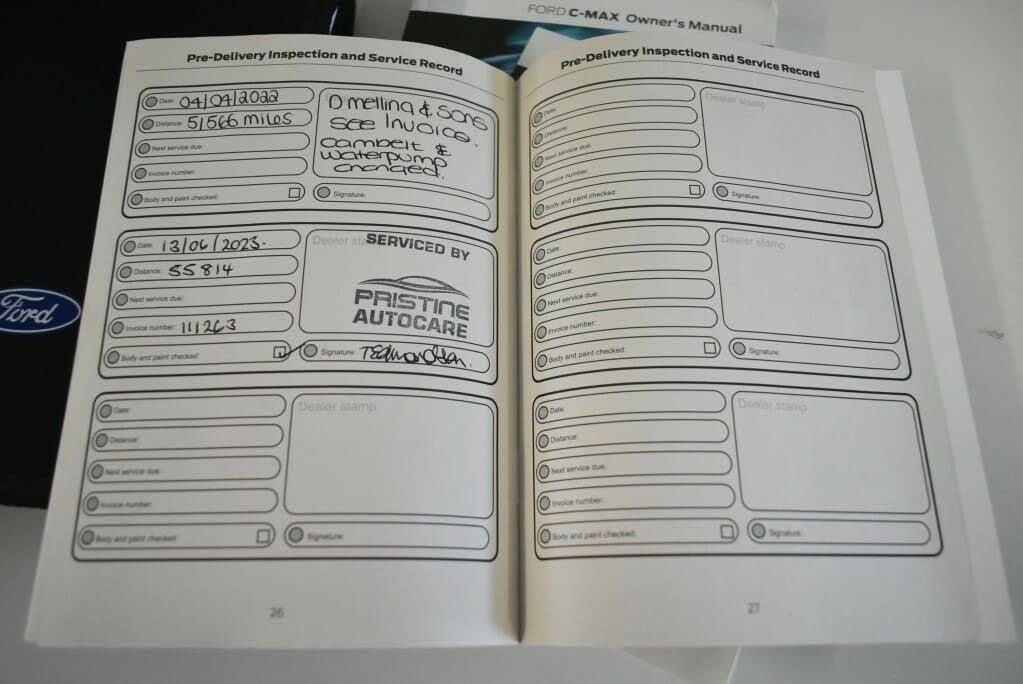 FORD C-MAX Owner's Manual
Ford
Pre-Delivery Inspection and Service Record
Date: 04/04/2022
Distance: 51566 miles
Next service due:
Invoice number:
Body and paint checked:
D melling & Sons
see Invoice.
cambelt &
waterpump
changed.
Signature:
Date: 13/06/2023.
Distance: 55814
Next service due:
Invoice number: 111263
Body and paint checked:
Dealer stamp
SERVICED BY
PRISTINE
AUTOCARE
Signature: TEdmondson.
Date:
Distance:
Next service due:
Invoice number:
Body and paint checked:
Dealer stamp
Signature:
26
Pre-Delivery Inspection and Service Record
Date:
Distance:
Next service due:
Invoice number:
Body and paint checked:
Dealer stamp
Signature:
Date:
Distance:
Next service due:
Invoice number:
Body and paint checked:
Dealer stamp
Signature:
Date:
Distance:
Next service due:
Invoice number:
Body and paint checked:
Dealer stamp
Signature:
27